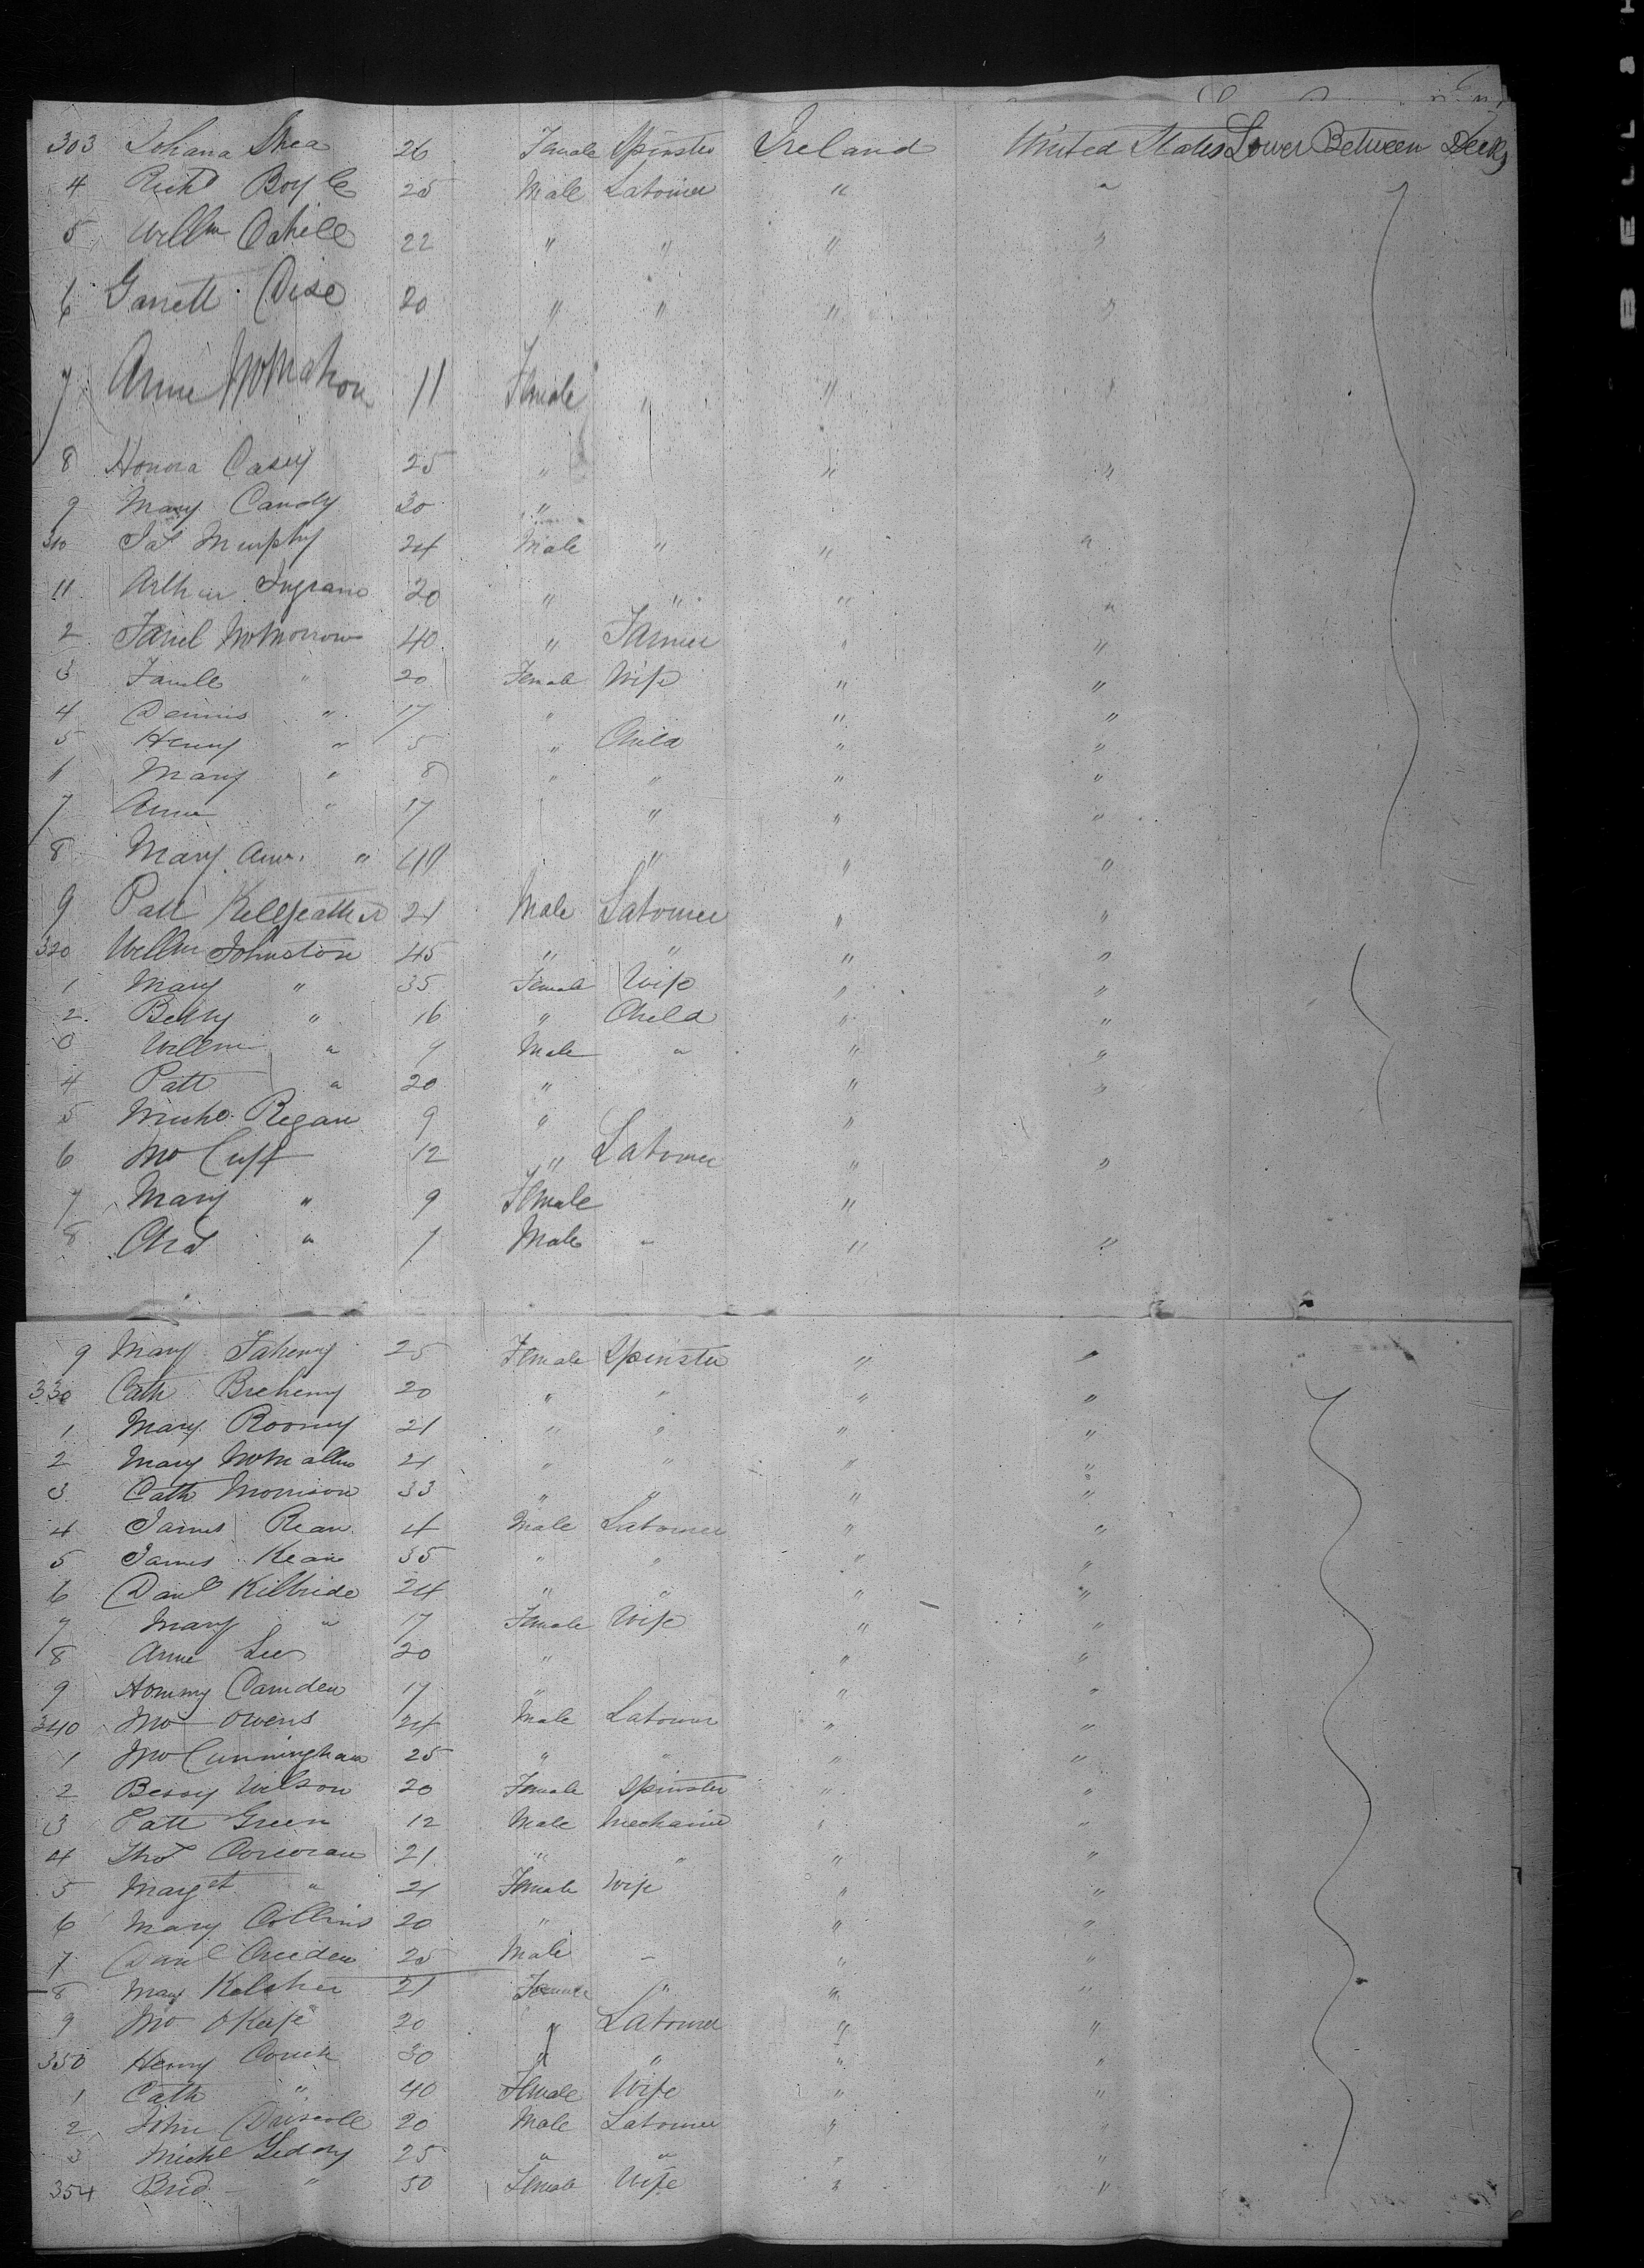 303 Johana Shea 26 Female Spinster Ireland United States Lower Between Decks
4 Richd Boyle 25 Male Labourer " "
5 Willm Cahill 22 " " " "
6 Garrett 20 " " " "
7 Anne McMahon 11 Female " " "
8 Honora Casey 25 " " "
9 Mary Candy 30 "
310 Pat Murphy 24 Male " " "
11 Arthur Ingram 20 " " " "
2 McMorrow 40 " Farmer " "
3 " 20 Female Wife " "
4 Dennis " 17 " " "
5 Henry " 5 " Child " "
6 Mary " 8 " " " "
7 Anne " 17 " " "
8 Mary Ann " " " "
9 Patt 21 Male Labourer " "
320 Willm Johnston 45 " " " "
1 Mary " 35 Female Wife " "
2 Betty " 16 " Child " "
3 Willm " 9 Male " " "
4 Patt " 20 " " "
5 Michl Regan 9 " "
6 Jno Cuff 12 " Labourer " "
7 Mary " 9 Female "
8 Chas " 7 Male " " "
9 Mary Faheny 25 Female Spinster " "
330 Cath Breheny 20 " " " "
1 Mary Rooney 21 " " " "
2 Mary 21 " " " "
3 Cath Morrison 33 " " " "
4 James Rean 4 Male Labourer " "
5 James Kean 35 " " " "
6 Danl Kilbride 24 " " " "
7 Mary " 17 Female Wife " "
8 Anne Lee 20 " " "
9 Camden 17 " " "
340 Jno Owens 24 Male Labourer " "
1 Jno Cunningham 25 " " " "
2 Bessy Wilson 20 Female Spinster " "
3 Patt Green 12 Male Mechanic " "
4 Thos Corcoran 21 " " " "
5 Marget " 21 Female Wife " "
6 Mary Collins 20 " " "
7 Danl Creeden 25 Male - " "
8 Mary Kelaher 21 Female " " "
9 Jno OKeefe 20 " Labourer " "
350 Henry Couch 30 " " " "
1 Cath " 40 Female Wife " "
2 John Driscoll 20 Male Labourer "
3 Michl 25 " " " "
354 Brid " 50 Female Wife " "